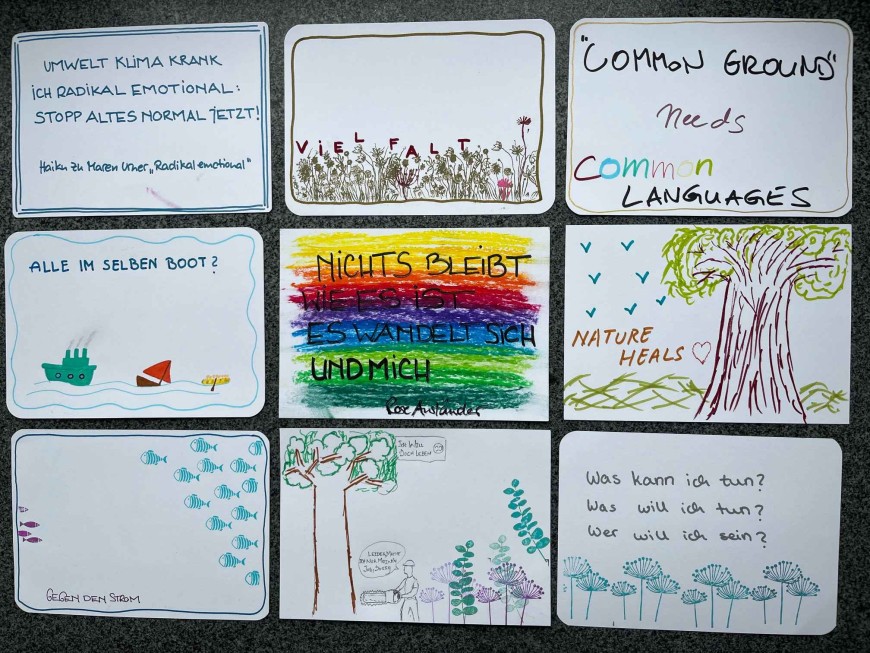 UMWELT KLIMA KRANK
ICH RADIKAL EMOTIONAL:
STOPP ALTES NORMAL JETZT!
Haiku zu Maren Urner „Radikal emotional"
VIELFALT
"COMMON GROUND"
Needs
Common
LANGUAGES
ALLE IM SELBEN BOOT?
NICHTS BLEIBT
WIE ES IST
ES WANDELT SICH
UND MICH
Rose Ausländer
NATURE
HEALS
GEGEN DEN STROM
ICH WILL
DOCH LEBEN
Was kann ich tun?
Was will ich tun?
Wer will ich sein?